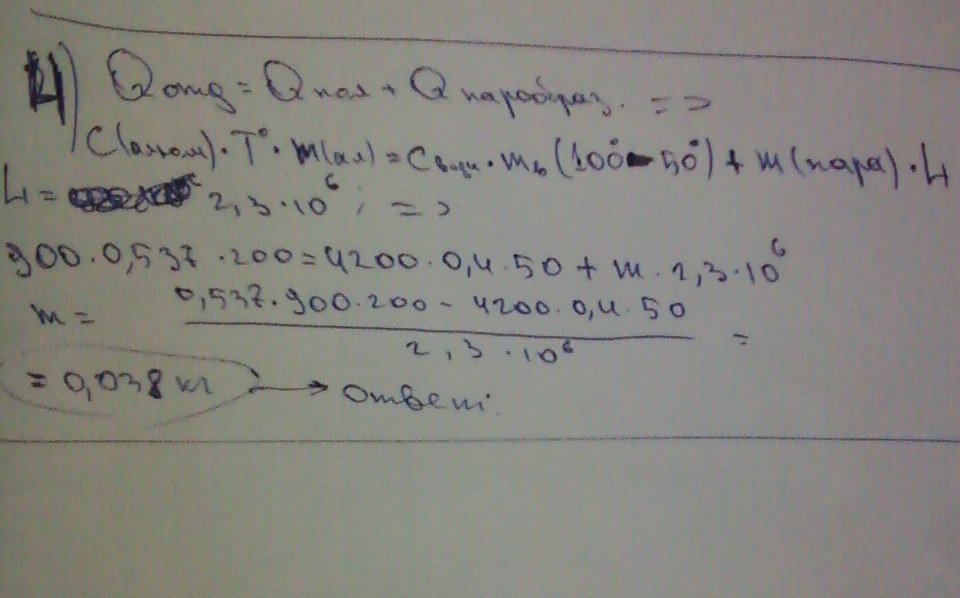 4) Qотд = Qпол + Qпарообраз. =>
C(алюм)·T°·m(ал) = Cводы·mв(100°-50°) + m(пара)·L
L = 2,3·10⁶; =>
900·0,537·200=4200·0,4·50 + m·2,3·10⁶
m = \frac{0,537·900·200 - 4200·0,4·50}{2,3·10⁶} =
= 0,038 кг → Ответ.